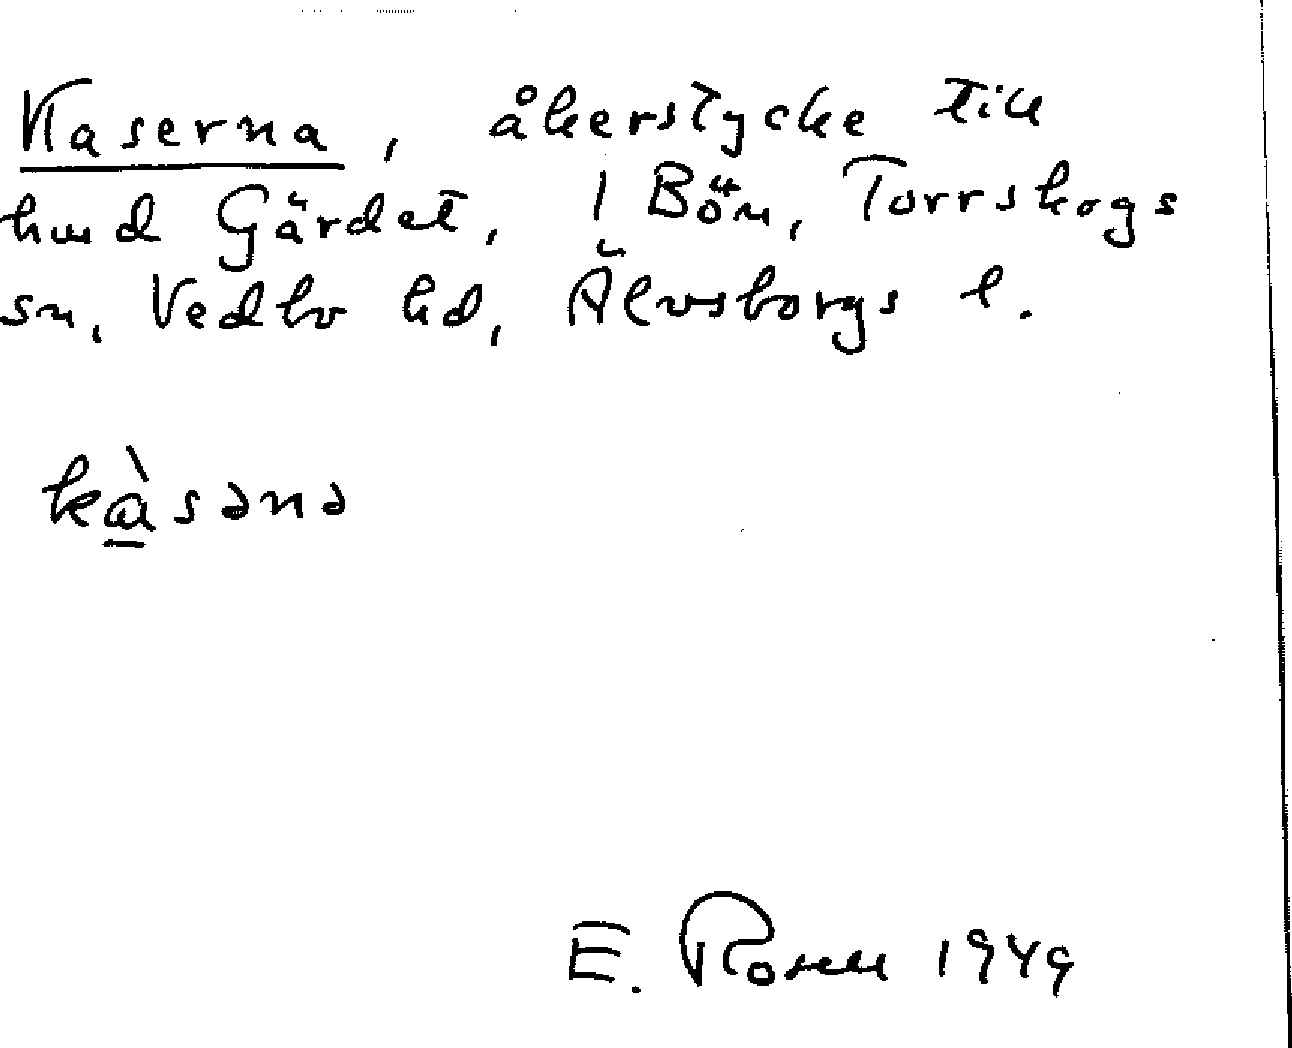 Kaserna, åkerstycke till
hmd Gärdet, 1 Bön, Torrskogs
sn, Vedbo hd, Älvsborgs l.
kàsənə
E. Rosell 1949